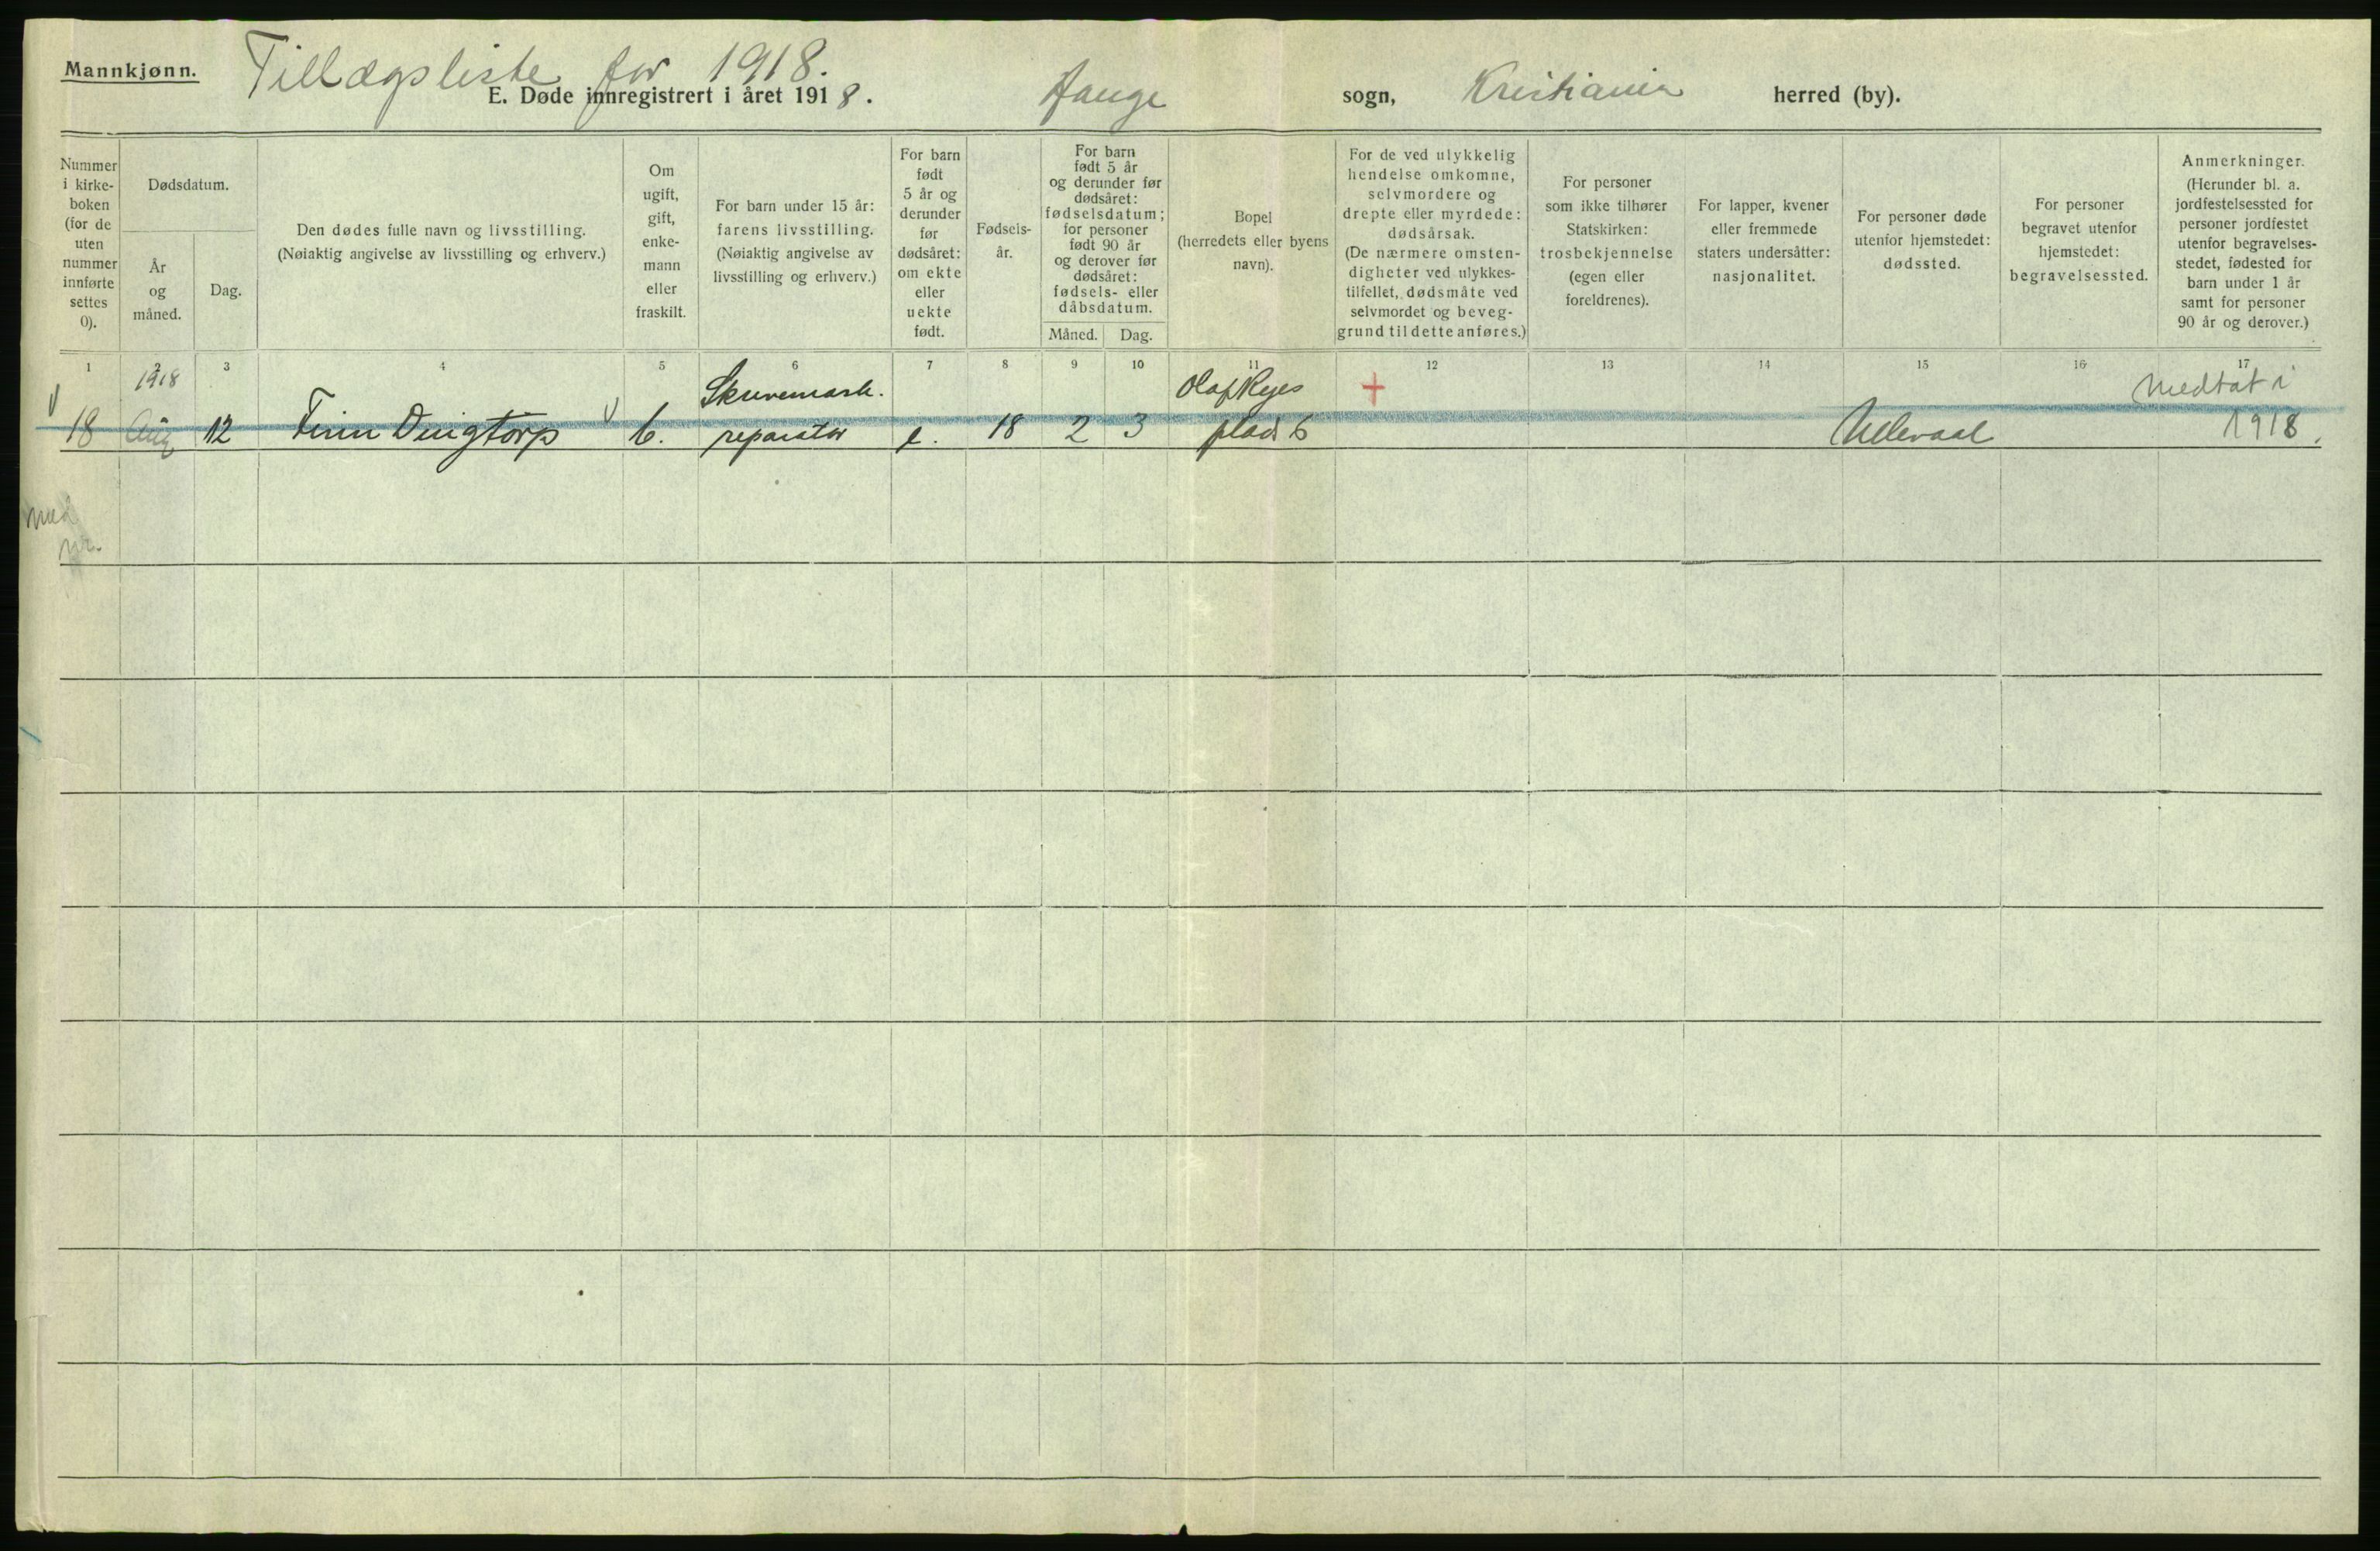 Mannkjønn.
Tillægsliste for 1918.
E. Døde innregistrert i året 1918.
Hauge sogn, Kristiania herred (by).
Nummer i kirke-boken (for de uten nummer innførte settes 0).
Dødsdatum.
År og måned.
Dag.
Den dødes fulle navn og livsstilling.
(Nøiaktig angivelse av livsstilling og erhverv.)
Om ugift, gift, enke-mann eller fraskilt.
For barn under 15 år: farens livsstilling.
(Nøiaktig angivelse av livsstilling og erhverv.)
For barn født 5 år og derunder før dødsåret: om ekte eller uekte født.
Fødsels-år.
For barn født 5 år og derunder før dødsåret: fødselsdatum; for personer født 90 år og derover før dødsåret: fødsels- eller dåbsdatum.
Måned.
Dag.
Bopel (herredets eller byens navn).
For de ved ulykkelig hendelse omkomne, selvmordere og drepte eller myrdede: dødsårsak.
(De nærmere omsten-digheter ved ulykkes-tilfellet, dødsmåte ved selvmordet og beveg-grund til dette anføres.)
For personer som ikke tilhører Statskirken: trosbekjennelse (egen eller foreldrenes).
For lapper, kvener eller fremmede staters undersåtter: nasjonalitet.
For personer døde utenfor hjemstedet: dødssted.
For personer begravet utenfor hjemstedet: begravelsessted.
Anmerkninger.
(Herunder bl. a. jordfestelsessted for personer jordfestet utenfor begravelses-stedet, fødested for barn under 1 år samt for personer 90 år og derover.)
1 2 3 4 5 6 7 8 9 10 11 12 13 14 15 16 17
1918 Skuvemask. Olaf Ryes + Medtat i
18 Aug 12 Finn 6. reparatør e. 18 2 3 plads 6 Ullevaal 1918.
nr.